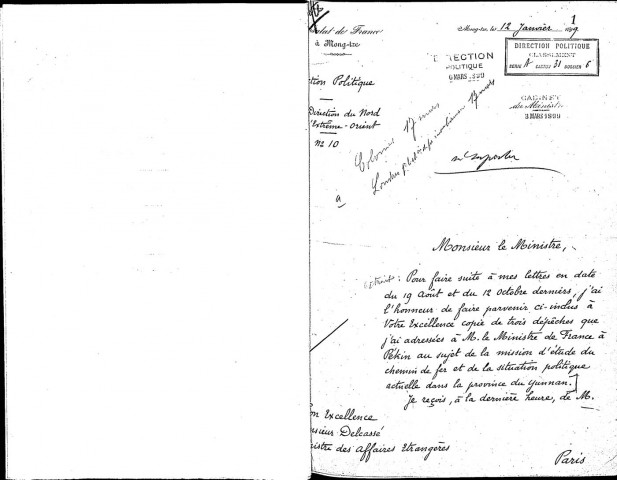 1
sulat de France
à Mong-tze
Mong-tze, le 12 Janvier 1899.
DIRECTION POLITIQUE
CLASSEMENT
SÉRIE A CARTON 31 DOSSIER 6
DIRECTION
POLITIQUE
6 MARS 1899
CABINET
du Ministre
3 MARS 1899
ction Politique
Direction du Nord
Extrême-Orient
N° 10
Colonies 17 mars
Londres 17 mars
a
Monsieur le Ministre,
extrait : Pour faire suite à mes lettres en date
du 19 Août et du 12 Octobre derniers, j'ai
l'honneur de faire parvenir ci-inclus à
Votre Excellence copie de trois dépêches que
j'ai adressées à M. le Ministre de France à
Pékin au sujet de la mission d'étude du
chemin de fer et de la situation politique
actuelle dans la province du Yunnan.]
Je reçois, à la dernière heure, de M.
on Excellence
nsieur Delcassé
istre des Affaires Etrangères
Paris